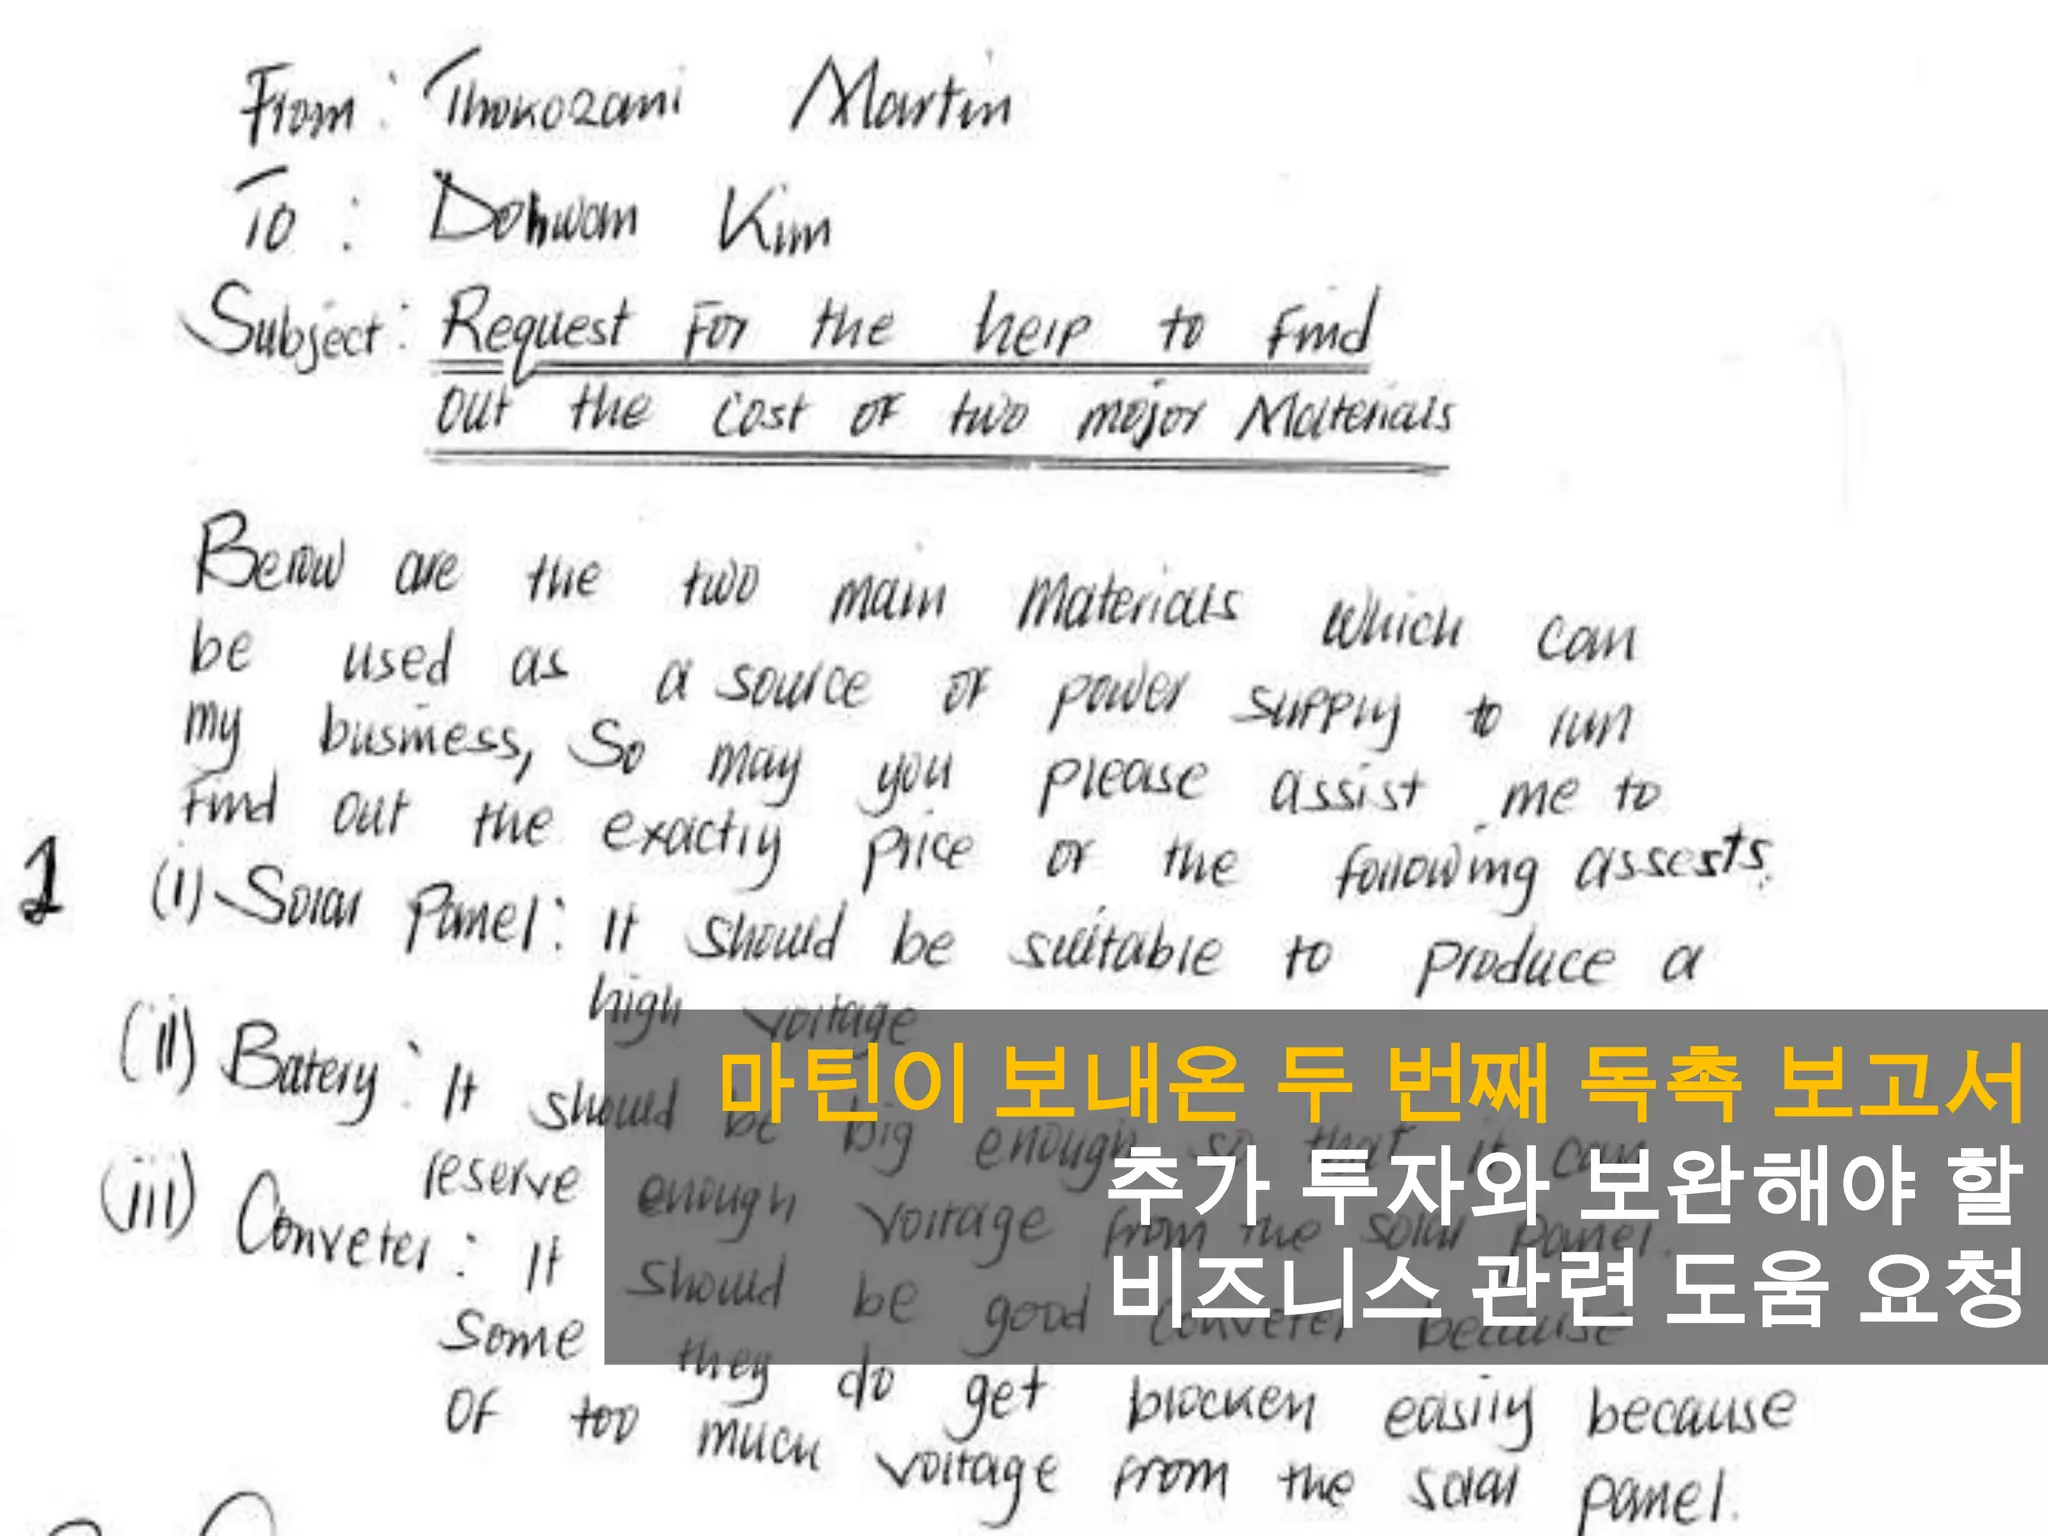 From: Thokozani Martin
To: Dohwan Kim
Subject: Request For the help to Find
out the cost of two major Materials
Below are the two main materials which can
be used as a source of power supply to run
my business, So may you please assist me to
Find out the exactly price of the following assests.
1 (i) Solar Panel: It should be suitable to produce a
high voltage
(ii) Batery: It should be big enough so that it can
reserve enough voltage from the solar panel.
(iii) Conveter: It should be good conveter because
some they do get blocken easily because
OF too much voltage from the solar panel.
마틴이 보내온 두 번째 독촉 보고서
추가 투자와 보완해야 할
비즈니스 관련 도움 요청